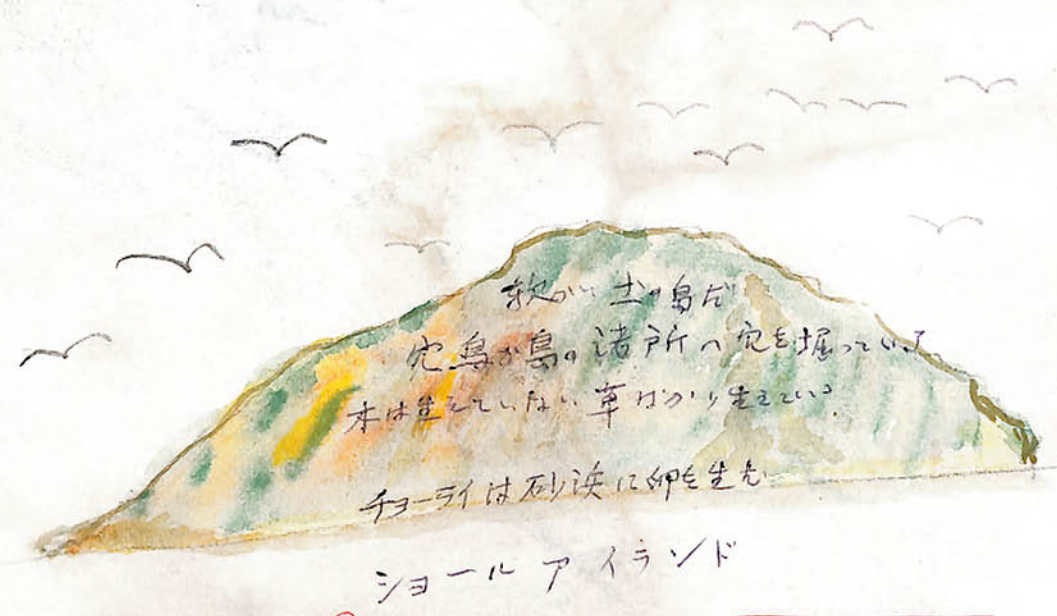 軟かい土の島だ
穴鳥が島の諸所へ穴を堀っている
木は生えていない草ばかり生えている.
チョーライは砂浜に卵を生む
ショールアイランド